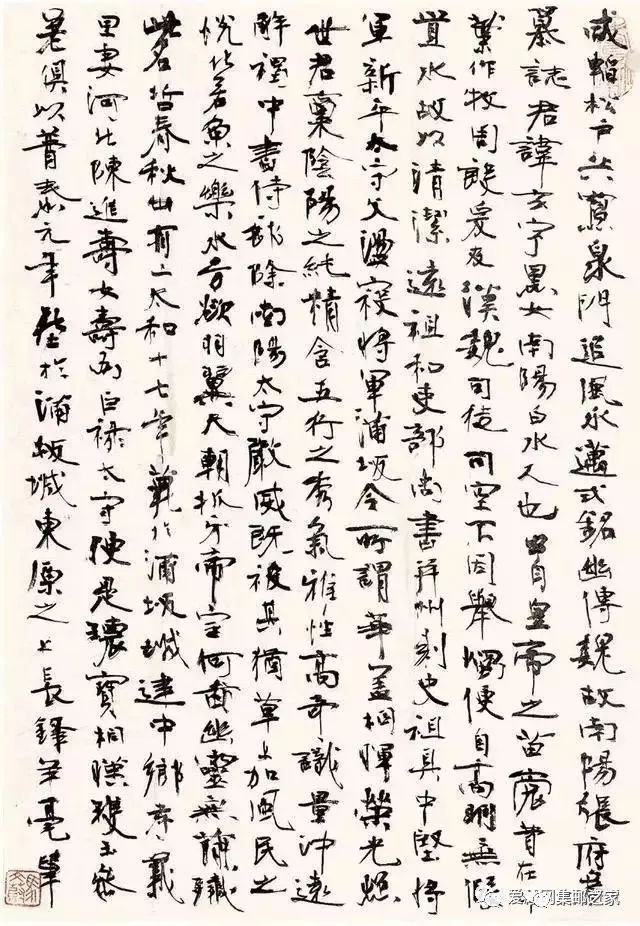 咸韜松戶共寂泉門追風永邁式銘幽傳魏故南陽張府君
墓誌君諱玄字黑女南陽白水人也出自皇帝之苗裔昔在中
葉作牧周殷爰及漢魏司徒司空不因舉燭便自高明無假
置水故以清潔遠祖和吏部尚書并州刺史祖具中堅將
軍新平太守父盪寇將軍蒲坂令所謂華蓋相暉榮光照
世君稟陰陽之純精含五行之秀氣雅性高奇識量沖遠
解褐中書侍郎除南陽太守嚴威既被其猶草上加風民之
悅化若魚之樂水方欲羽翼天朝抓牙帝室何圖幽靈無簡殲
此名哲春秋卅有二太和十七年薨於蒲坂城建中鄉孝義
里妻河北陳進壽女壽為巨祿太守便是瓌寶相映瓊玉參
差俱以普泰元年葬於蒲坂城東原之上長鋒羊毫筆
网集邮艺家